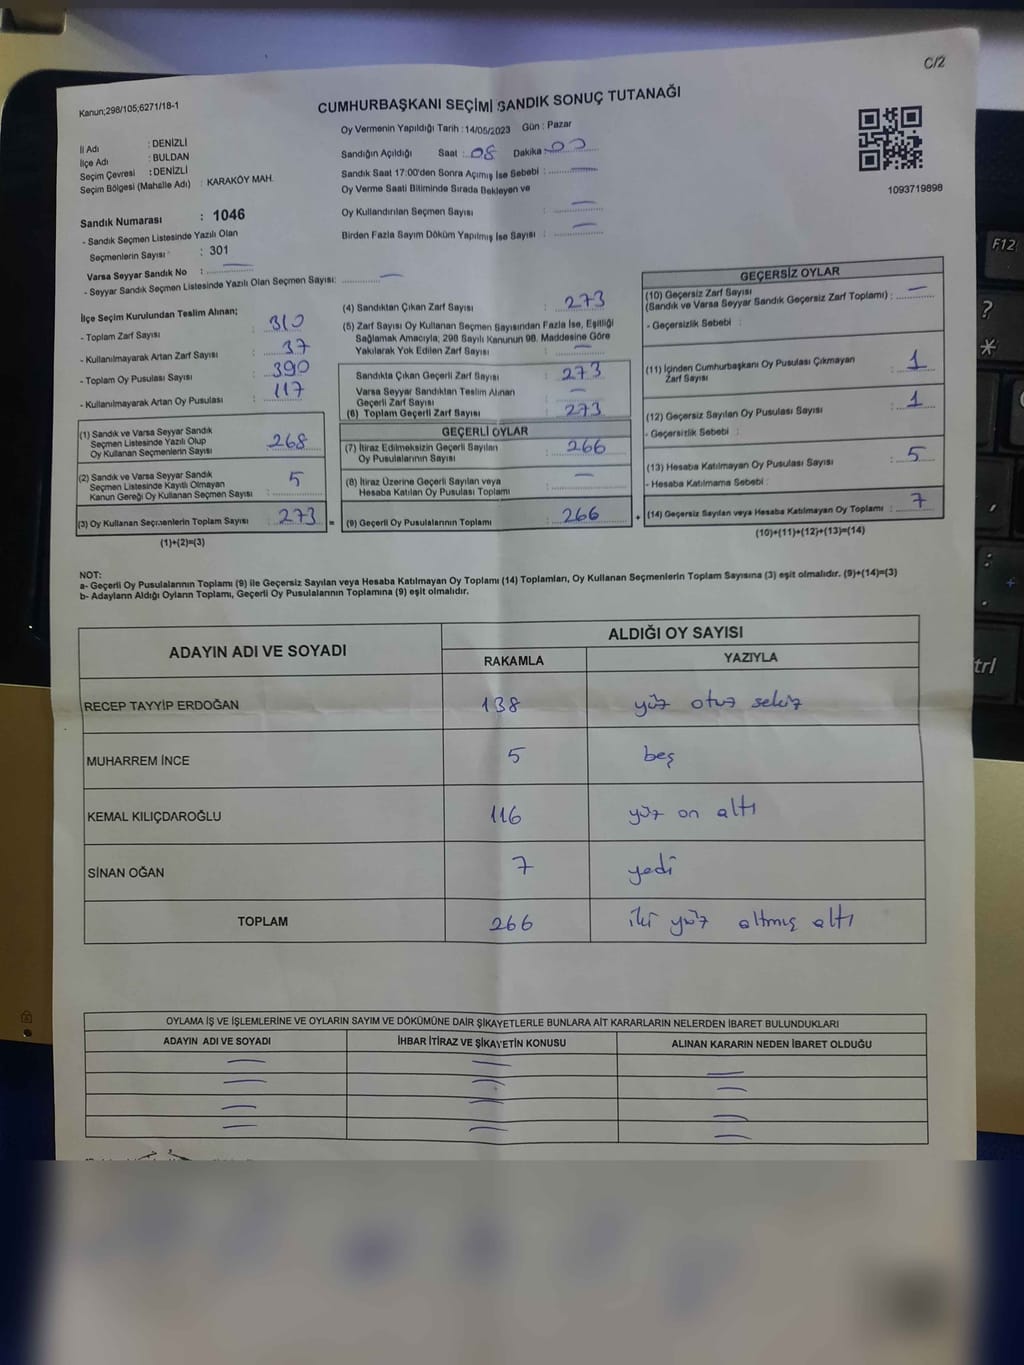 C/2
Kanun;298/105;6271/18-1
CUMHURBAŞKANI SEÇİMİ SANDIK SONUÇ TUTANAĞI
Oy Vermenin Yapıldığı Tarih : 14/05/2023 Gün : Pazar
İl Adı : DENİZLİ
İlçe Adı : BULDAN
Seçim Çevresi : DENİZLİ
Seçim Bölgesi (Mahalle Adı) : KARAKÖY MAH.
Sandık Numarası : 1046
- Sandık Seçmen Listesinde Yazılı Olan
Seçmenlerin Sayısı : 301
Varsa Seyyar Sandık No : —
- Seyyar Sandık Seçmen Listesinde Yazılı Olan Seçmen Sayısı: —
Sandığın Açıldığı Saat : 08 Dakika : 00
Sandık Saat 17:00'den Sonra Açılmış İse Sebebi : —
Oy Verme Saati Bitiminde Sırada Bekleyen ve
Oy Kullandırılan Seçmen Sayısı : —
Birden Fazla Sayım Döküm Yapılmış İse Sayısı : —
1093719898
İlçe Seçim Kurulundan Teslim Alınan;
- Toplam Zarf Sayısı : 310
- Kullanılmayarak Artan Zarf Sayısı : 37
- Toplam Oy Pusulası Sayısı : 390
- Kullanılmayarak Artan Oy Pusulası : 117
(1) Sandık ve Varsa Seyyar Sandık
Seçmen Listesinde Yazılı Olup
Oy Kullanan Seçmenlerin Sayısı : 268
(2) Sandık ve Varsa Seyyar Sandık
Seçmen Listesinde Kayıtlı Olmayan
Kanun Gereği Oy Kullanan Seçmen Sayısı : 5
(3) Oy Kullanan Seçmenlerin Toplam Sayısı : 273 =
(1)+(2)=(3)
(4) Sandıktan Çıkan Zarf Sayısı : 273
(5) Zarf Sayısı Oy Kullanan Seçmen Sayısından Fazla İse, Eşitliği
Sağlamak Amacıyla, 298 Sayılı Kanunun 98. Maddesine Göre
Yakılarak Yok Edilen Zarf Sayısı : —
Sandıkta Çıkan Geçerli Zarf Sayısı : 273
Varsa Seyyar Sandıktan Teslim Alınan
Geçerli Zarf Sayısı : —
(6) Toplam Geçerli Zarf Sayısı : 273
GEÇERLİ OYLAR
(7) İtiraz Edilmeksizin Geçerli Sayılan
Oy Pusulalarının Sayısı : 266
(8) İtiraz Üzerine Geçerli Sayılan veya
Hesaba Katılan Oy Pusulası Toplamı : —
(9) Geçerli Oy Pusulalarının Toplamı : 266 +
GEÇERSİZ OYLAR
(10) Geçersiz Zarf Sayısı
(Sandık ve Varsa Seyyar Sandık Geçersiz Zarf Toplamı) : —
- Geçersizlik Sebebi :
(11) İçinden Cumhurbaşkanı Oy Pusulası Çıkmayan
Zarf Sayısı : 1
(12) Geçersiz Sayılan Oy Pusulası Sayısı : 1
- Geçersizlik Sebebi :
(13) Hesaba Katılmayan Oy Pusulası Sayısı : 5
- Hesaba Katılmama Sebebi :
(14) Geçersiz Sayılan veya Hesaba Katılmayan Oy Toplamı : 7
(10)+(11)+(12)+(13)=(14)
NOT:
a- Geçerli Oy Pusulalarının Toplamı (9) ile Geçersiz Sayılan veya Hesaba Katılmayan Oy Toplamı (14) Toplamları, Oy Kullanan Seçmenlerin Toplam Sayısına (3) eşit olmalıdır. (9)+(14)=(3)
b- Adayların Aldığı Oyların Toplamı, Geçerli Oy Pusulalarının Toplamına (9) eşit olmalıdır.
ADAYIN ADI VE SOYADI ALDIĞI OY SAYISI
RAKAMLA YAZIYLA
RECEP TAYYİP ERDOĞAN 138 yüz otuz sekiz
MUHARREM İNCE 5 beş
KEMAL KILIÇDAROĞLU 116 yüz on altı
SİNAN OĞAN 7 yedi
TOPLAM 266 iki yüz altmış altı
OYLAMA İŞ VE İŞLEMLERİNE VE OYLARIN SAYIM VE DÖKÜMÜNE DAİR ŞİKAYETLERLE BUNLARA AİT KARARLARIN NELERDEN İBARET BULUNDUKLARI
ADAYIN ADI VE SOYADI İHBAR İTİRAZ VE ŞİKAYETİN KONUSU ALINAN KARARIN NEDEN İBARET OLDUĞU
F12
?
*
trl